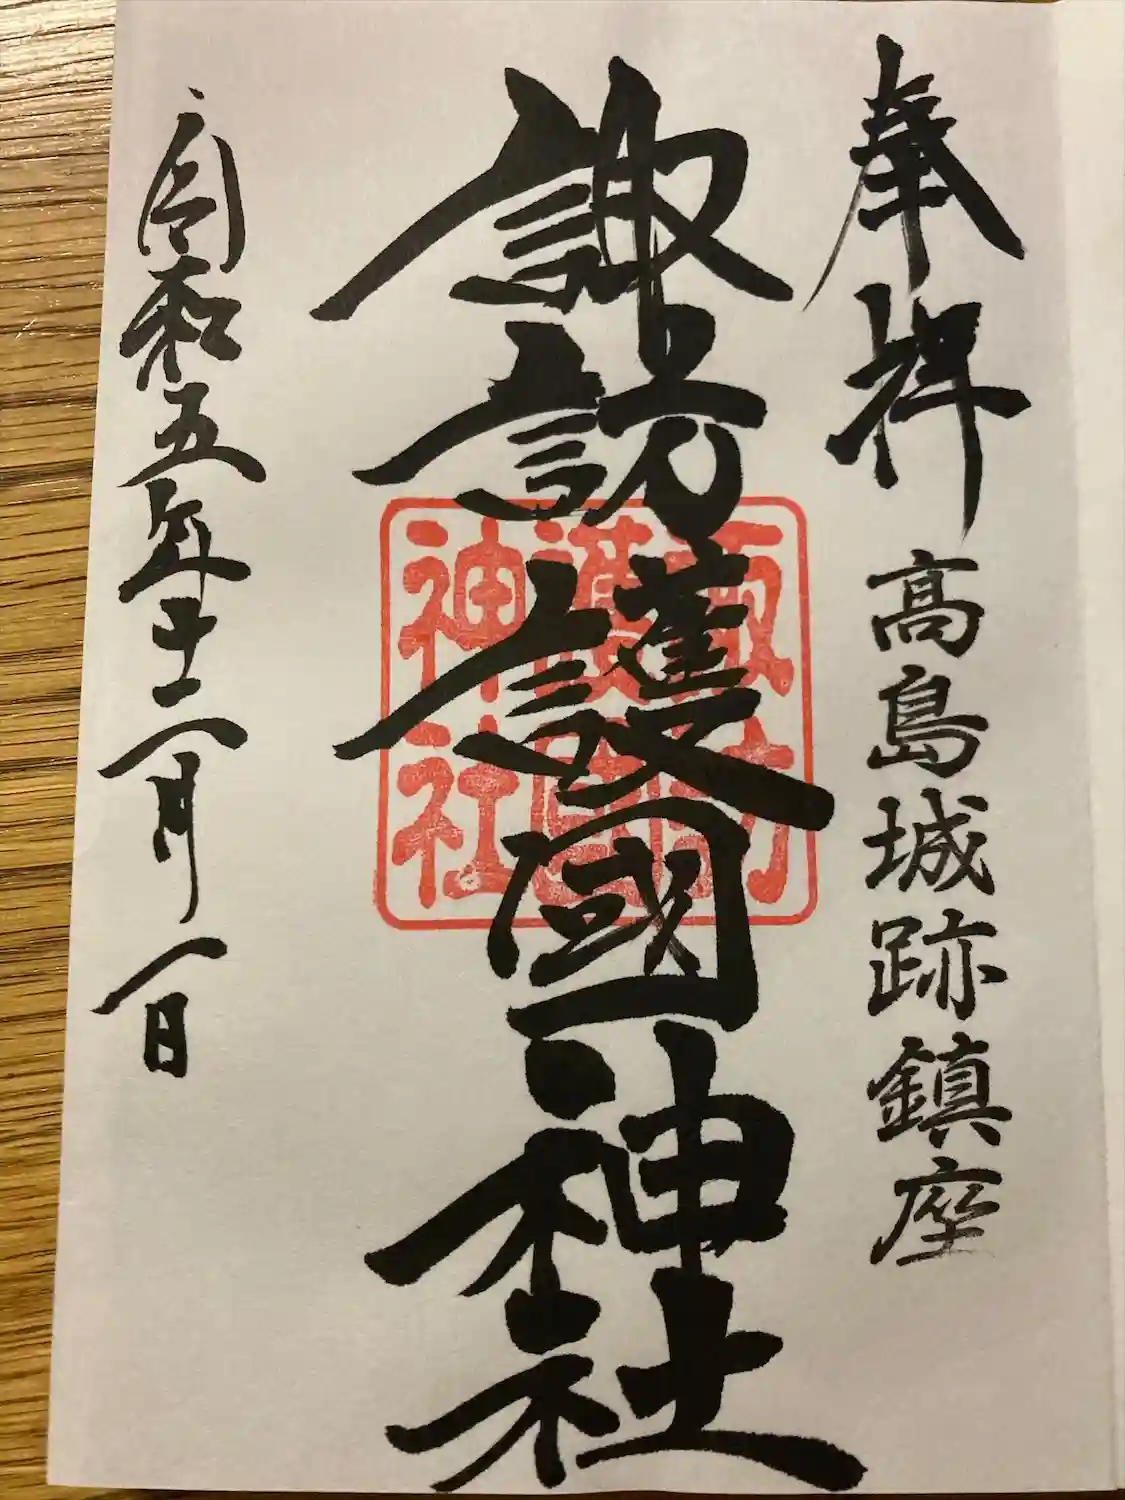 奉拝 高島城跡鎮座
諏訪護國神社
令和五年十二月一日
諏訪
護
神社